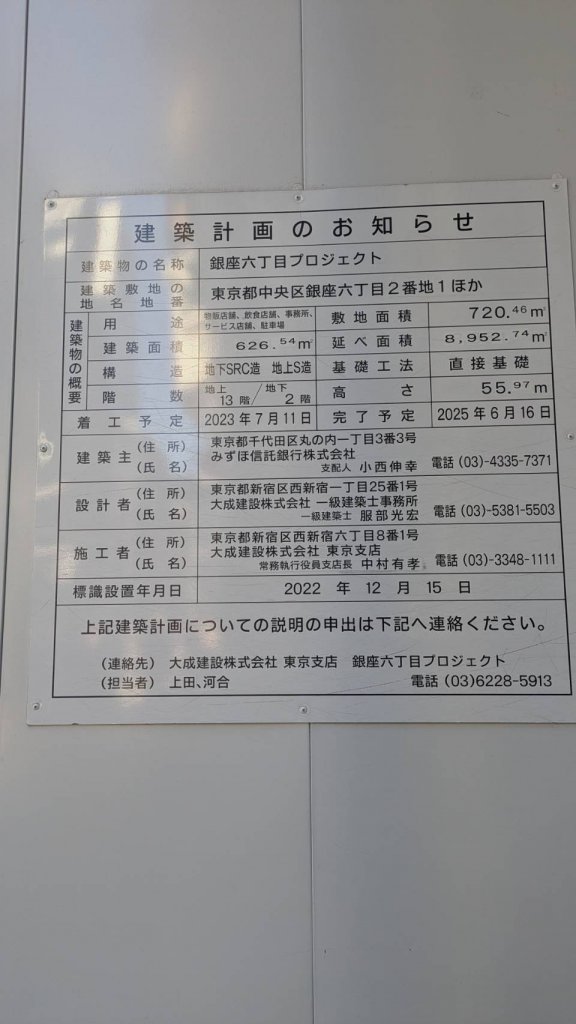 建築計画のお知らせ
建築物の名称 銀座六丁目プロジェクト
建築敷地の地名地番 東京都中央区銀座六丁目2番地1ほか
建築物の概要
用途 物販店舗、飲食店舗、事務所、サービス店舗、駐車場 敷地面積 720.46㎡
建築面積 626.54㎡ 延べ面積 8,952.74㎡
構造 地下SRC造 地上S造 基礎工法 直接基礎
階数 地上13階/地下2階 高さ 55.97m
着工予定 2023年7月11日 完了予定 2025年6月16日
建築主(住所) 東京都千代田区丸の内一丁目3番3号
(氏名) みずほ信託銀行株式会社
支配人 小西伸幸 電話(03)-4335-7371
設計者(住所) 東京都新宿区西新宿一丁目25番1号
(氏名) 大成建設株式会社 一級建築士事務所
一級建築士 服部光宏 電話(03)-5381-5503
施工者(住所) 東京都新宿区西新宿六丁目8番1号
(氏名) 大成建設株式会社 東京支店
常務執行役員支店長 中村有孝 電話(03)-3348-1111
標識設置年月日 2022年12月15日
上記建築計画についての説明の申出は下記へ連絡ください。
(連絡先) 大成建設株式会社 東京支店 銀座六丁目プロジェクト
(担当者) 上田、河合 電話(03)6228-5913